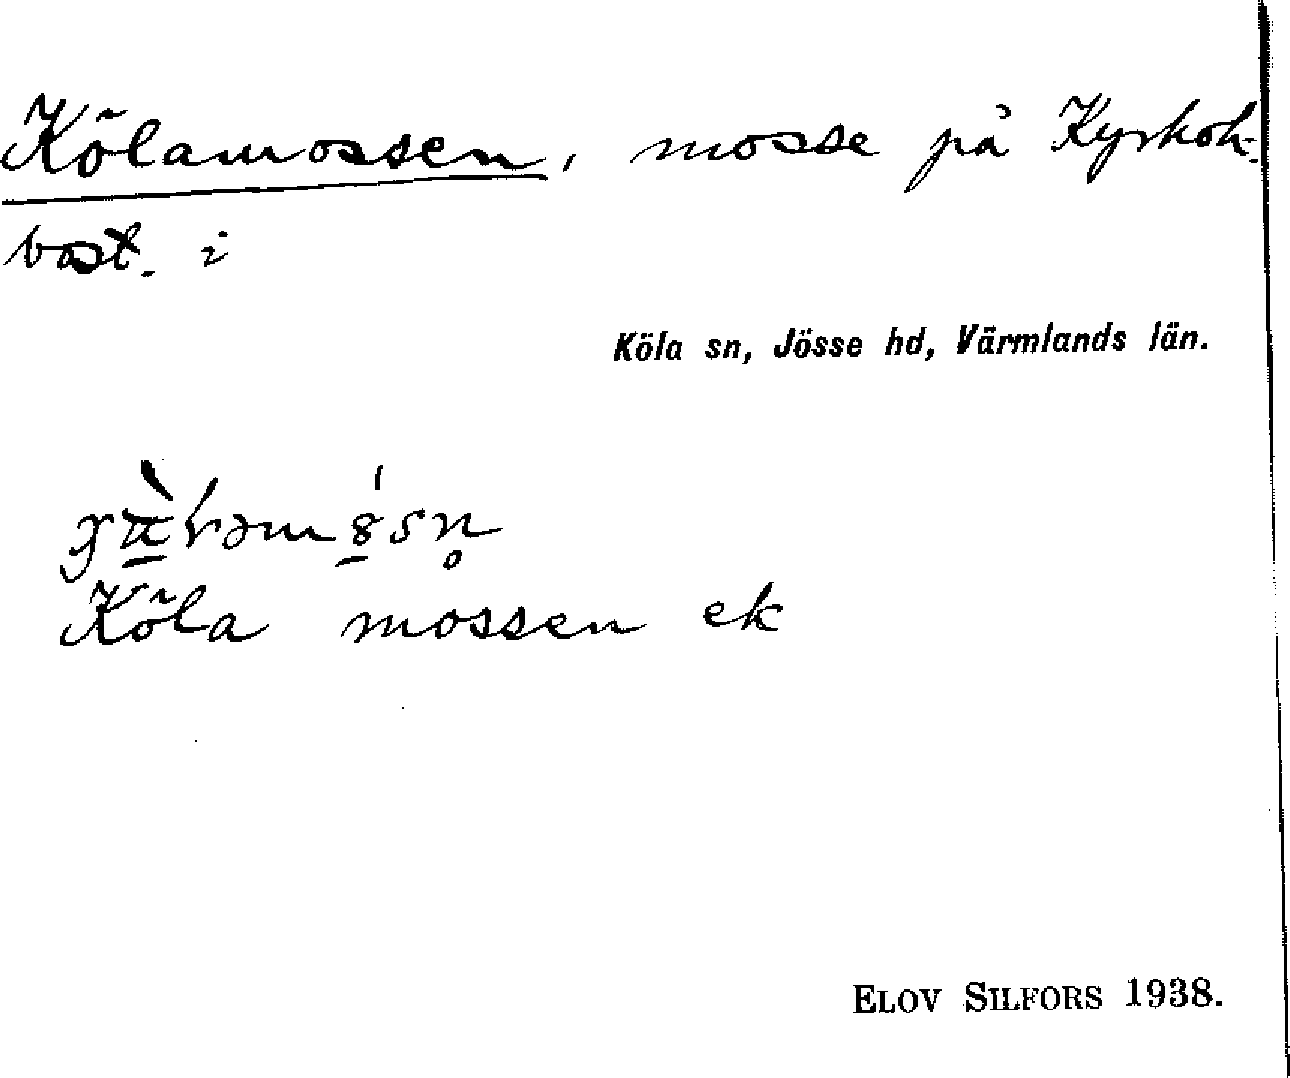 Kölamossen, mosse på Kyrkoh.
bost. i
Köla sn, Jösse hd, Värmlands län.
Köla mossen ek
ELOV SILFORS 1938.